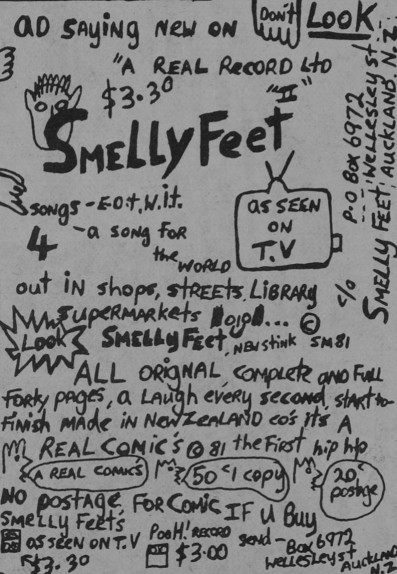 aD SAYING NEW ON DON'T LOOK
"A REAL RECORD LtD
$3.30 "II"
SMELLY FEET
SONGS - E.O.t.W.it.
4 - a SONG FOR
the WORLD
aS SEEN
ON
T.V
out IN SHOPS, STREETS, LIBRARY
SUPERMARKETS ... ©
LOOK SMELLY FEET, NEW STINK SM81
ALL ORIGNAL, COMPLETE AND FULL
FORTY PAGES, a LAUGH EVERY SECOND, START-to-
FINISH MADE IN NEW ZEALAND CO'S IT'S A
REAL COMIC'S © 81 the FIRST hip hip
A REAL COMICS 50c 1 COPY 20c
POSTAGE
NO POSTAGE FOR COMIC IF U BUY
SMELLY FEET'S
aS SEEN ON T.V POOH! RECORD
$3.30 $3.00 SEND - BOX 6972
WELLESLEY ST AUCKLAND
N.Z
c/o P.O BOX 6972
WELLESLEY ST
SMELLY FEET, AUCKLAND. N.Z.